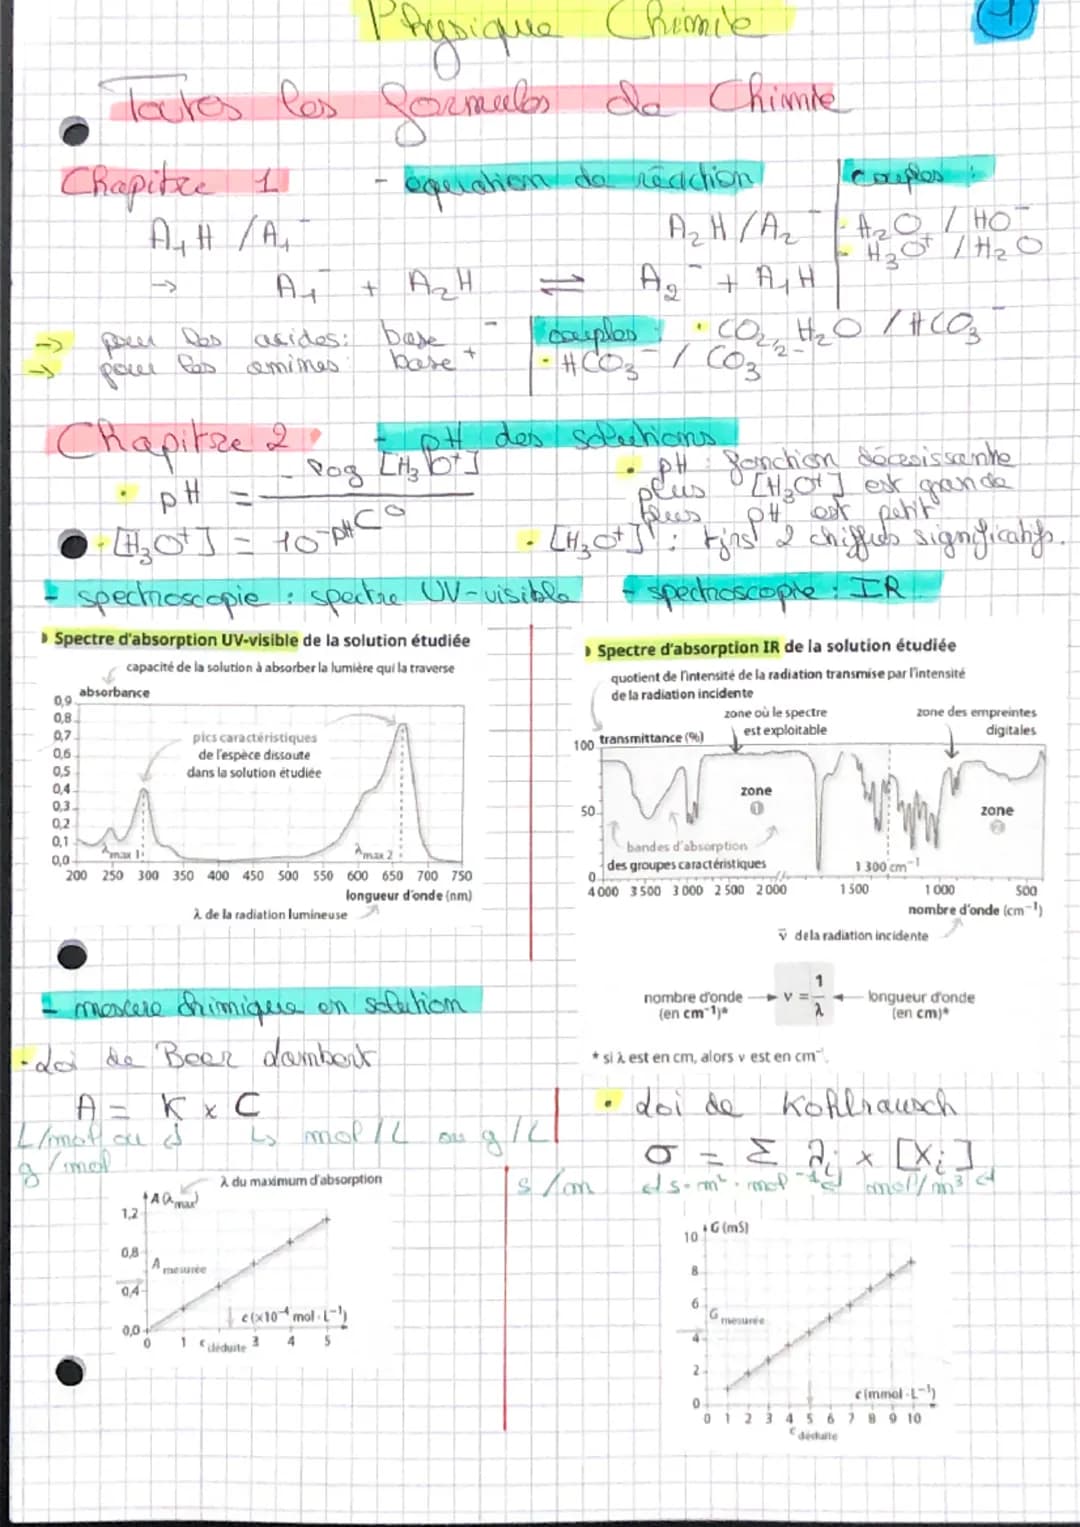 Physique Chimie
1
Toutes les formules de Chimie
Chapitre 1 - équation de réaction
couples :
A₁H / A₁⁻ A₂H / A₂⁻
- H₂O / HO⁻
- H₃O⁺ / H₂O
→ A₁⁻ + A₂H ⇌ A₂⁻ + A₁H
→ pour les acides : base⁻
→ pour les amines : base⁺
couples
• CO₂, H₂O / HCO₃⁻
• HCO₃⁻ / CO₃²⁻
Chapitre 2 - pH des solutions
• pH = - log [H₃O⁺] / C°
• [H₃O⁺] = 10^-pH
• pH : fonction décroissante
plus [H₃O⁺] est grande
plus pH est petit
• [H₃O⁺] : tjrs 2 chiffres significatifs.
- spectroscopie : spectre UV-visible
- spectroscopie : IR
Spectre d'absorption UV-visible de la solution étudiée
capacité de la solution à absorber la lumière qui la traverse
absorbance
0,9
0,8
0,7
0,6
0,5
0,4
0,3
0,2
0,1
0,0
pics caractéristiques
de l'espèce dissoute
dans la solution étudiée
λmax 1
λmax 2
200 250 300 350 400 450 500 550 600 650 700 750
longueur d'onde (nm)
λ de la radiation lumineuse
Spectre d'absorption IR de la solution étudiée
quotient de l'intensité de la radiation transmise par l'intensité
de la radiation incidente
zone où le spectre
est exploitable
zone des empreintes
digitales
transmittance (%)
100
50
0
zone
1
zone
2
bandes d'absorption
des groupes caractéristiques
1 300 cm⁻¹
4 000 3 500 3 000 2 500 2 000 1 500 1 000 500
nombre d'onde (cm⁻¹)
ν̄ de la radiation incidente
nombre d'onde
(en cm⁻¹)*
ν = 1/λ
longueur d'onde
(en cm)*
* si λ est en cm, alors ν est en cm⁻¹.
- mesure chimique en solution
• Loi de Beer Lambert
A = K x C
L/mol ou g/mol
↳ mol/L ou g/L
λ du maximum d'absorption
A(λmax)
1,2
0,8
0,4
0,0
A mesurée
c (×10⁻⁴ mol·L⁻¹)
0 1 c déduite 3 4 5
• Loi de Kohlrausch
σ = Σ λi x [Xi]
S/m
S·m²·mol⁻¹
mol/m³
G (mS)
10
8
6
4
2
0
G mesurée
c (mmol·L⁻¹)
0 1 2 3 4 5 6 7 8 9 10
c déduite